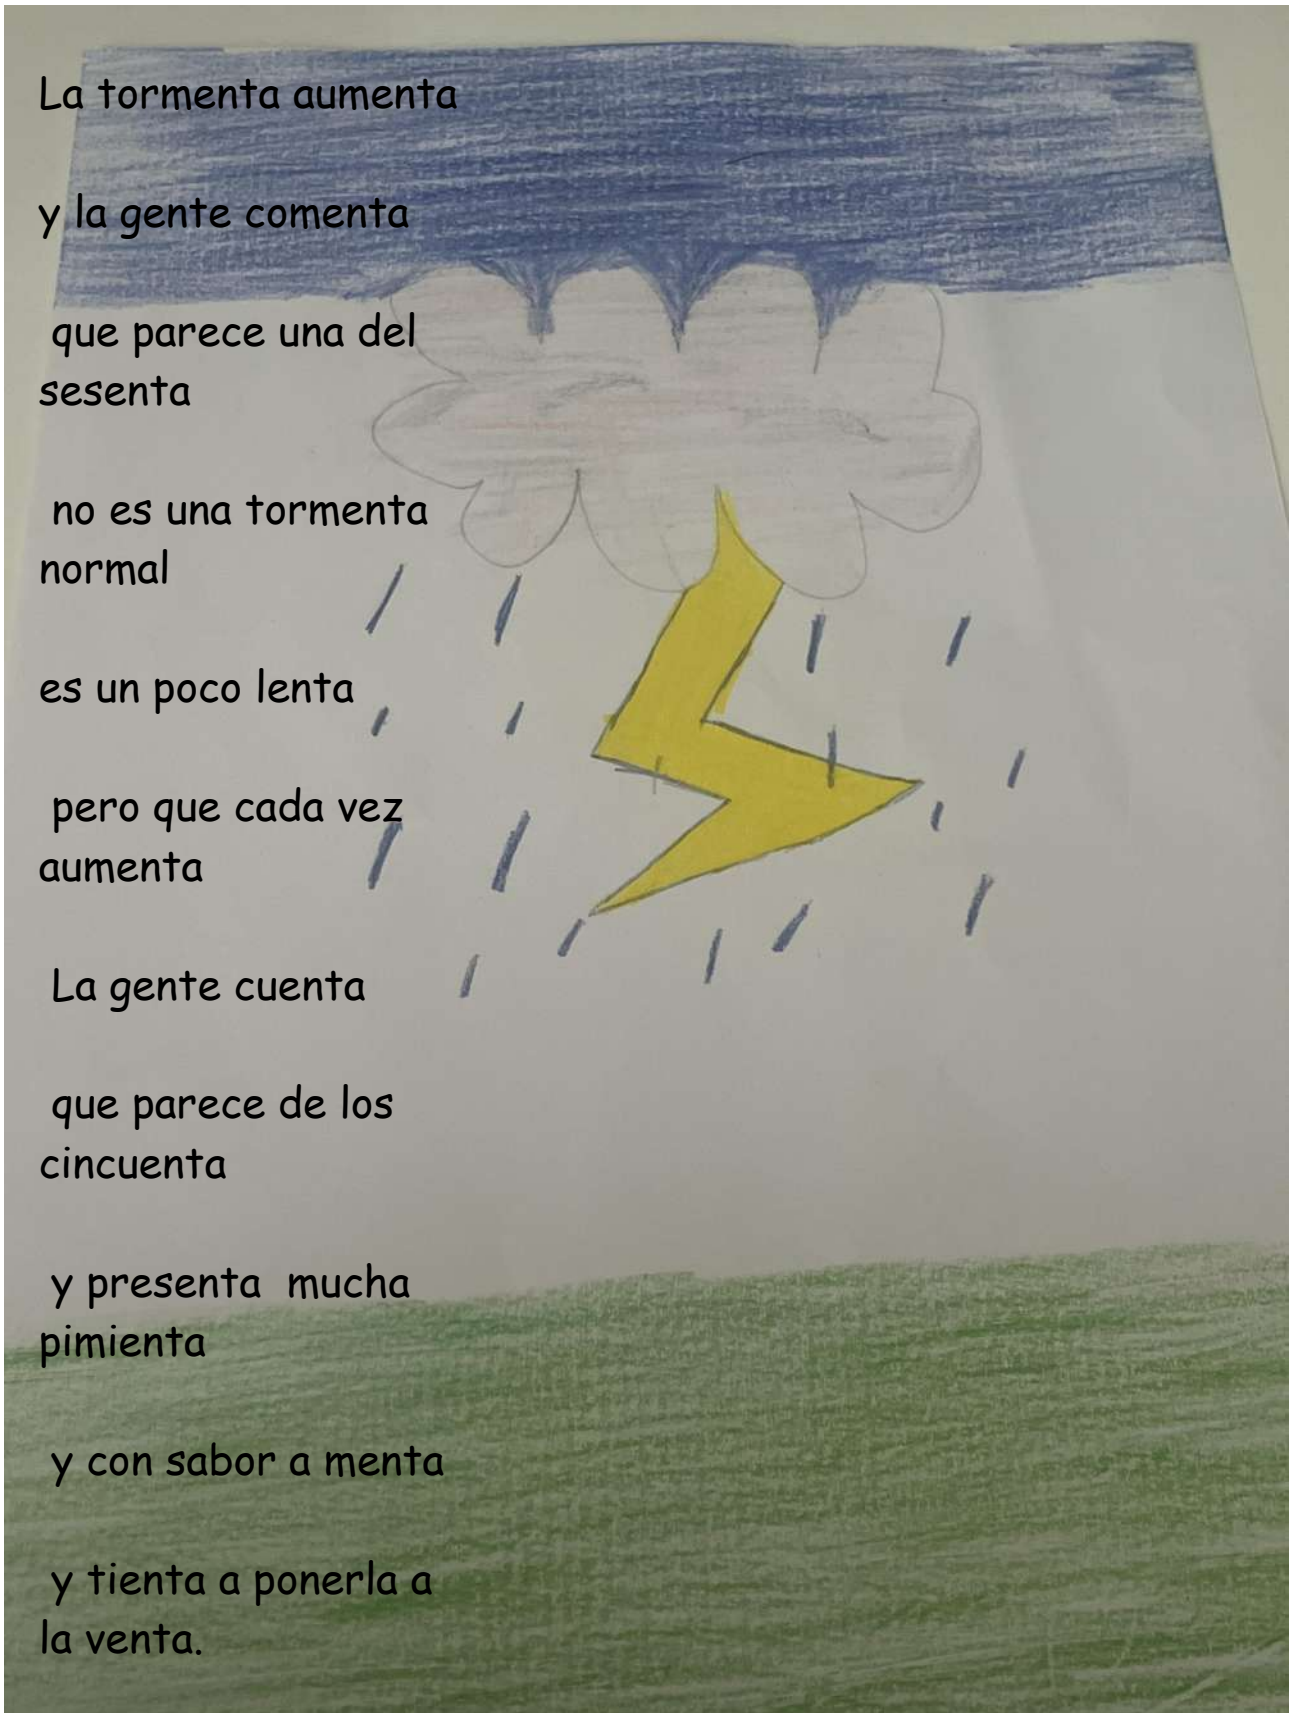 La tormenta aumenta
y la gente comenta
que parece una del
sesenta
no es una tormenta
normal
es un poco lenta
pero que cada vez
aumenta
La gente cuenta
que parece de los
cincuenta
y presenta  mucha
pimienta
y con sabor a menta
y tienta a ponerla a
la venta.